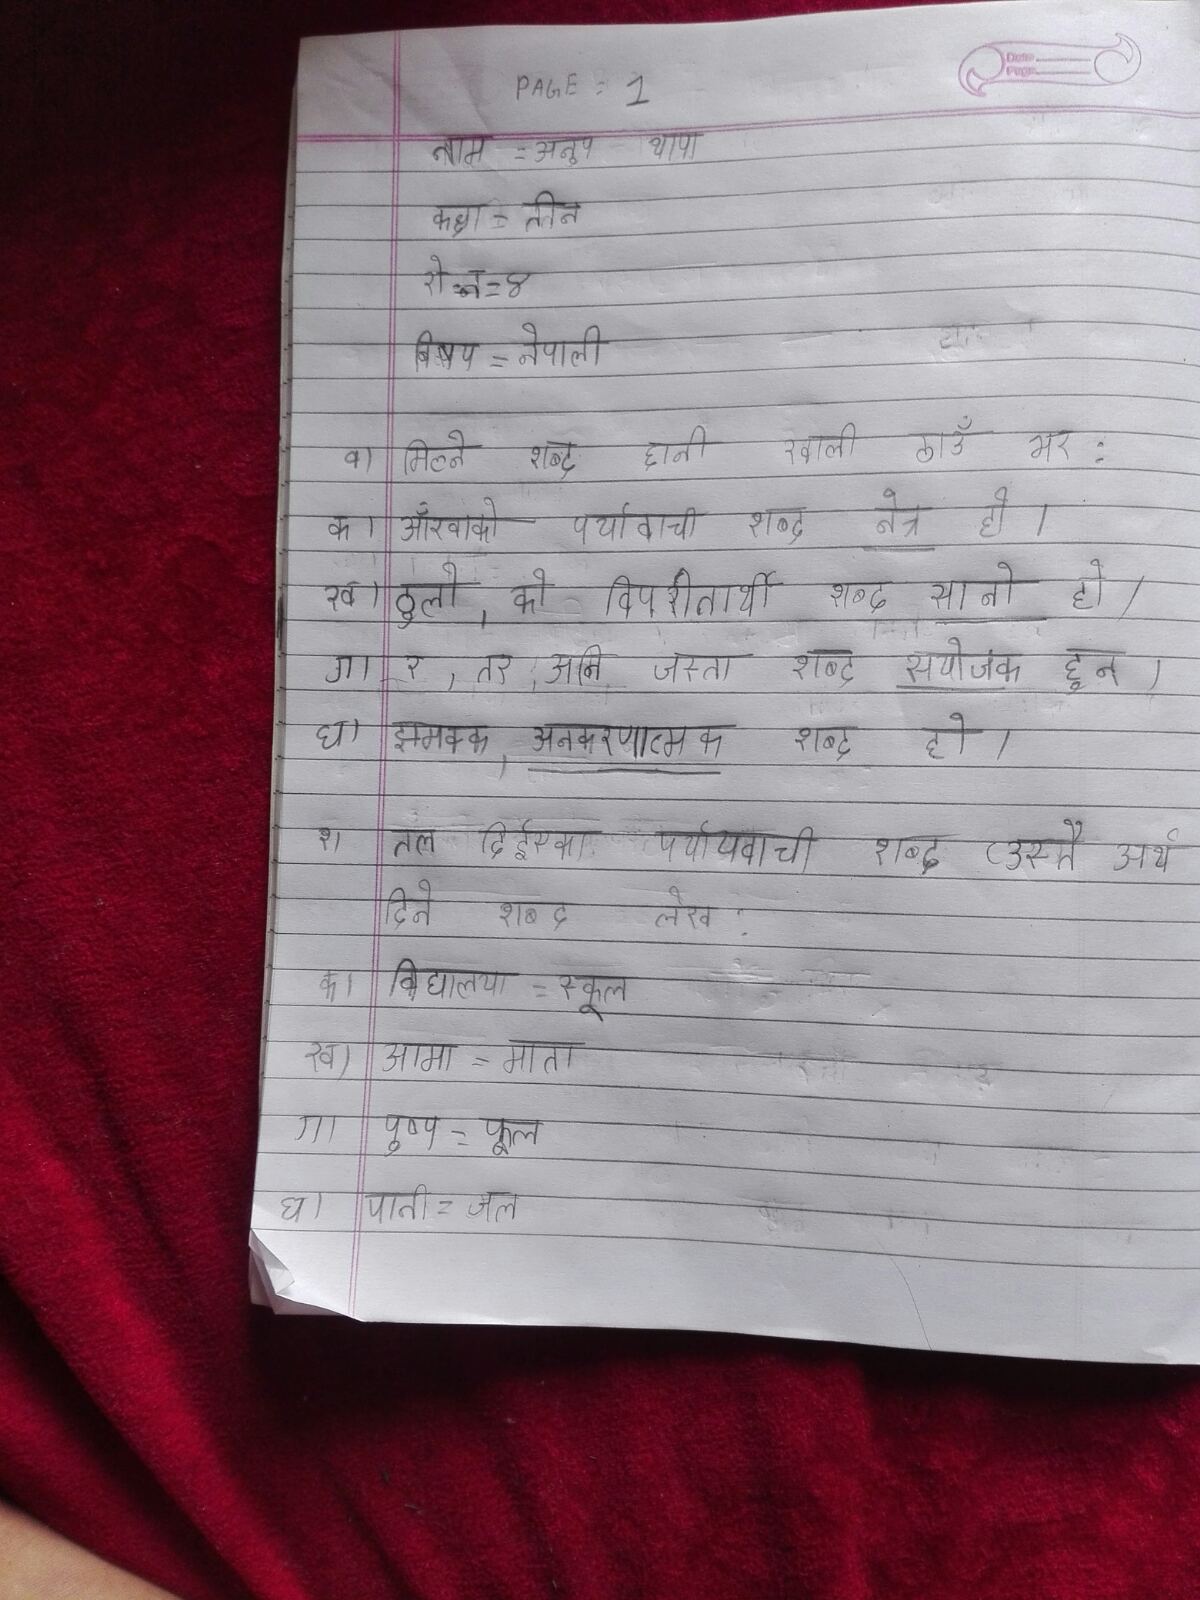 PAGE : 1
Date
Page
नाम = अनुप थापा
कक्षा = तीन
रो नं = ४
बिषय = नेपाली
मिल्ने शब्द छानी खाली ठाउँ भर :
क। आँखाको पर्यावाची शब्द नेत्र हो ।
ख। ठुलो, को विपरीतार्थी शब्द सानो हो ।
ग। र , तर , अनि जस्ता शब्द सयोजक हुन ।
घ। झमक्क, अनकरणात्मक शब्द हो ।
तल दिईएका पर्यायवाची शब्द (उस्तै अर्थ
दिने शब्द लेख :
क। विद्यालया = स्कूल
ख) आमा = माता
ग। पुष्प = फूल
घ। पानी = जल